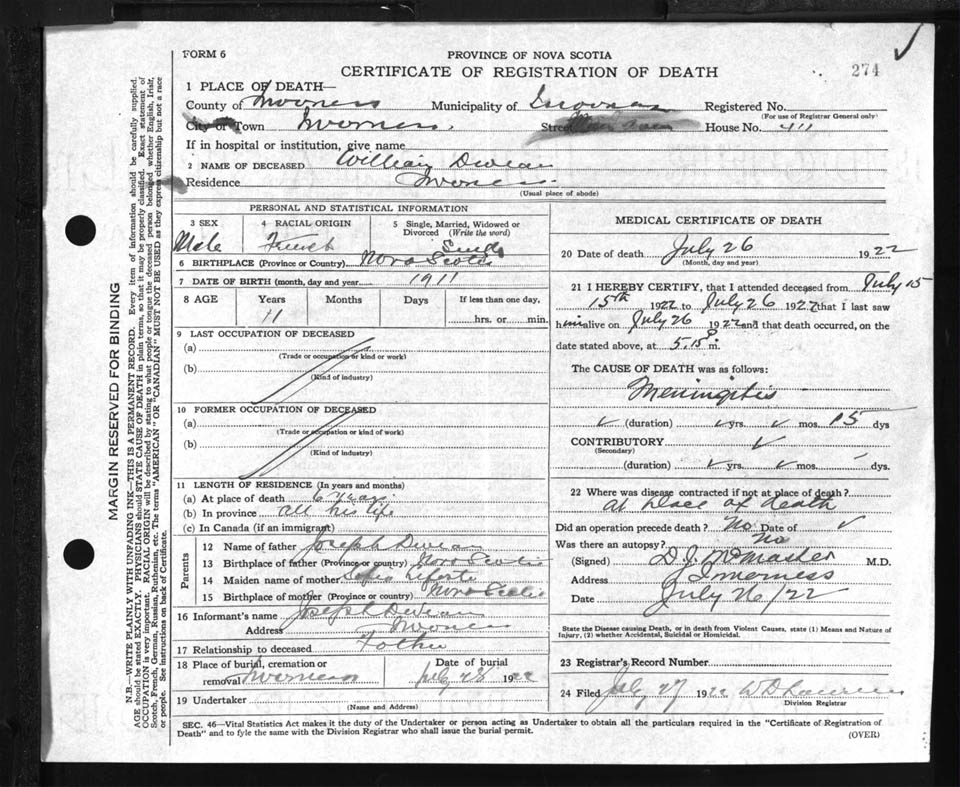 FORM 6
PROVINCE OF NOVA SCOTIA
CERTIFICATE OF REGISTRATION OF DEATH
274
1 PLACE OF DEATH—
County of Inverness Municipality of Inverness Registered No.
(For use of Registrar General only)
City or Town Inverness Street House No. 411
If in hospital or institution, give name
2 NAME OF DECEASED William Deveau
Residence Inverness
(Usual place of abode)
PERSONAL AND STATISTICAL INFORMATION
3 SEX 4 RACIAL ORIGIN 5 Single, Married, Widowed or Divorced (Write the word)
Male French Single
6 BIRTHPLACE (Province or Country) Nova Scotia
7 DATE OF BIRTH (month, day and year) 1911
8 AGE Years Months Days If less than one day,
11 hrs. or min.
9 LAST OCCUPATION OF DECEASED
(a)
(Trade or occupation or kind or work)
(b)
(Kind of industry)
10 FORMER OCCUPATION OF DECEASED
(a)
(Trade or occupation or kind of work)
(b)
(Kind of industry)
11 LENGTH OF RESIDENCE (In years and months)
(a) At place of death 6 years
(b) In province all his life
(c) In Canada (if an immigrant)
Parents
12 Name of father Joseph Deveau
13 Birthplace of father (Province or country) Nova Scotia
14 Maiden name of mother
15 Birthplace of mother (Province or country) Nova Scotia
16 Informant's name Joseph Deveau
Address Inverness
17 Relationship to deceased Father
18 Place of burial, cremation or removal Inverness Date of burial July 28 1922
19 Undertaker
(Name and Address)
MEDICAL CERTIFICATE OF DEATH
20 Date of death July 26 1922
(Month, day and year)
21 I HEREBY CERTIFY, that I attended deceased from July 15
15th 1922 to July 26 1922 that I last saw
him alive on July 26 1922 and that death occurred, on the
date stated above, at 5.15 P m.
The CAUSE OF DEATH was as follows:
Meningitis
(duration) yrs. mos. 15 dys
CONTRIBUTORY
(Secondary)
(duration) yrs. mos. dys.
22 Where was disease contracted if not at place of death?
At place of death
Did an operation precede death? No Date of
Was there an autopsy? No
(Signed) D. J. McMaster M.D.
Address Inverness
Date July 26/22
State the Disease causing Death, or in death from Violent Causes, state (1) Means and Nature of
Injury, (2) whether Accidental, Suicidal or Homicidal.
23 Registrar's Record Number
24 Filed July 27 1922
Division Registrar
SEC. 46—Vital Statistics Act makes it the duty of the Undertaker or person acting as Undertaker to obtain all the particulars required in the "Certificate of Registration of
Death" and to fyle the same with the Division Registrar who shall issue the burial permit.
(OVER)
MARGIN RESERVED FOR BINDING
N.B.—WRITE PLAINLY WITH UNFADING INK—THIS IS A PERMANENT RECORD. Every item of information should be carefully supplied.
AGE should be stated EXACTLY. PHYSICIANS should STATE CAUSE OF DEATH in plain terms, so that it may be properly classified. Exact statement of
OCCUPATION is very important. RACIAL ORIGIN will be described by stating to what people or tongue the deceased person belonged whether English, Irish,
Scotch, French, German, Russian, Ruthenian, etc. The terms "AMERICAN" or "CANADIAN" MUST NOT BE USED as they express citizenship but not a race
or people. See instructions on back of Certificate.